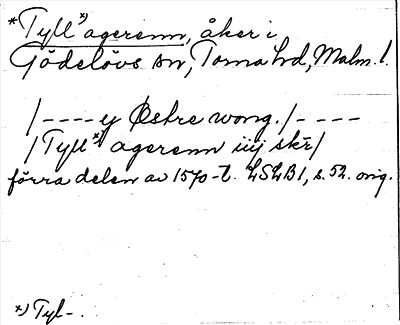 *Tyll*) agerenn, åker i
Gödelövs sn, Torna hd, Malm. l.
/----y Østre wong./----
/Tyll*) agerenn iiij skr/
förra delen av 1570-t. LSLB1, s. 52. orig.
*) Tyl-.